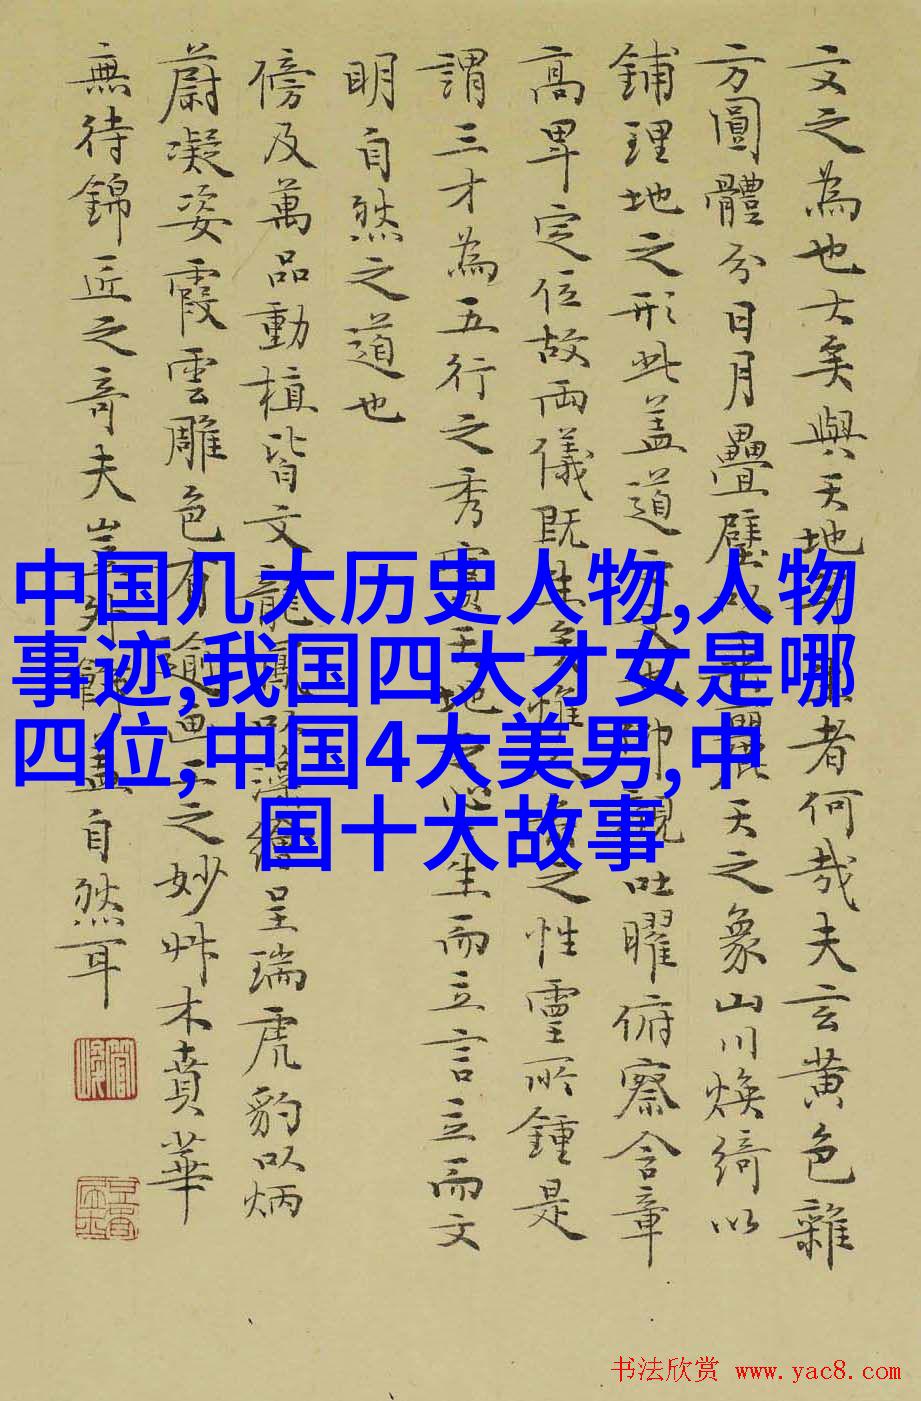 文之為也大矣與天地生者何哉夫玄黄色雜
方圓體分日月疊璧以垂麗天之象山川煥綺以
鋪理地之形此盖道之文也仰觀吐曜俯察含章
高卑定位故兩儀既生矣惟人參之性靈所鍾是
謂三才為五行之秀實天地之心生而立言立而文
明自然之道也
傍及萬品動植皆文龍鳳以藻繪呈瑞虎豹以炳
蔚凝姿霞雲雕色有逾画工之妙艸木賁華
無待錦匠之奇夫豈外飾盖自然耳
中国几大历史人物,人物
事迹,我国四大才女是哪
四位,中国4大美男,中
国十大故事
书法欣赏 www.yac8.com